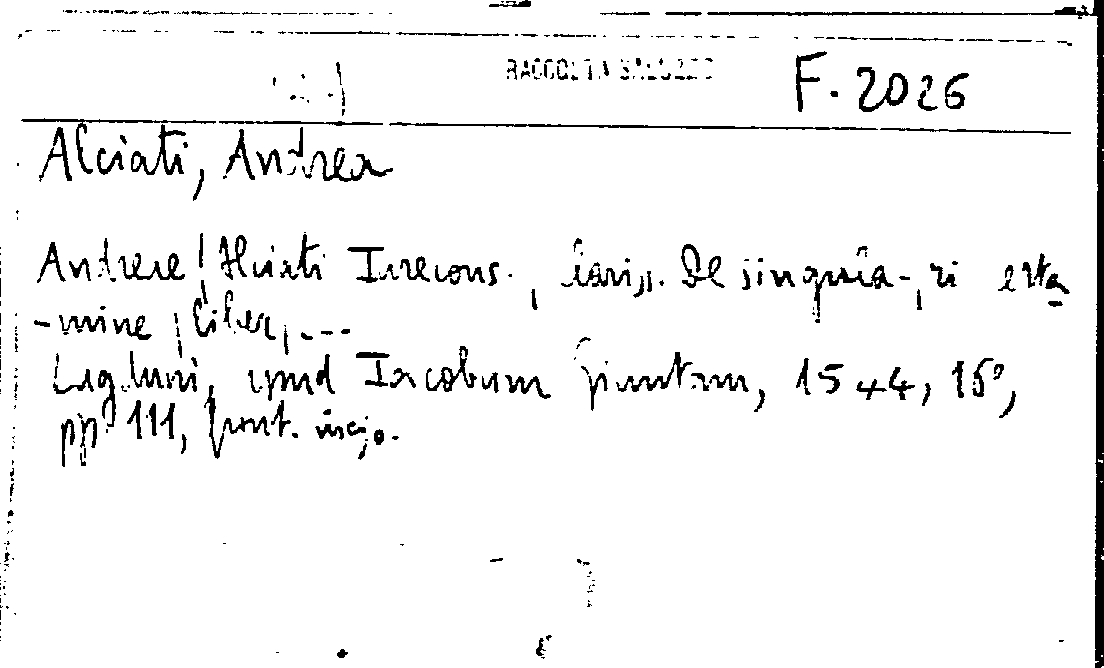 RACCOLTA SALUZZO F. 2026
Alciati, Andrea
Andreae | Alciati Iurecons., | clariss. De singula-|ri certa
-mine | liber, | ...
Lugduni, apud Iacobum Giuntam, 1544, 16°,
pp. 111, front. incis.